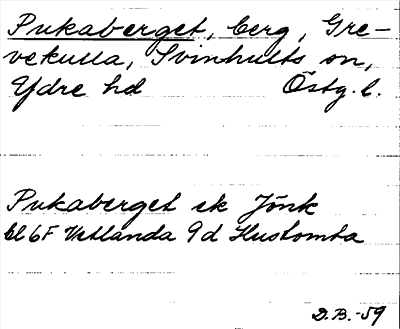 Pukaberget, berg, Gre-
vekulla, Svinhults sn,
Ydre hd Östg. l.
Pukaberget ek Jönk
bl 6F Vetlanda 9d Hustomta
D.B.-59